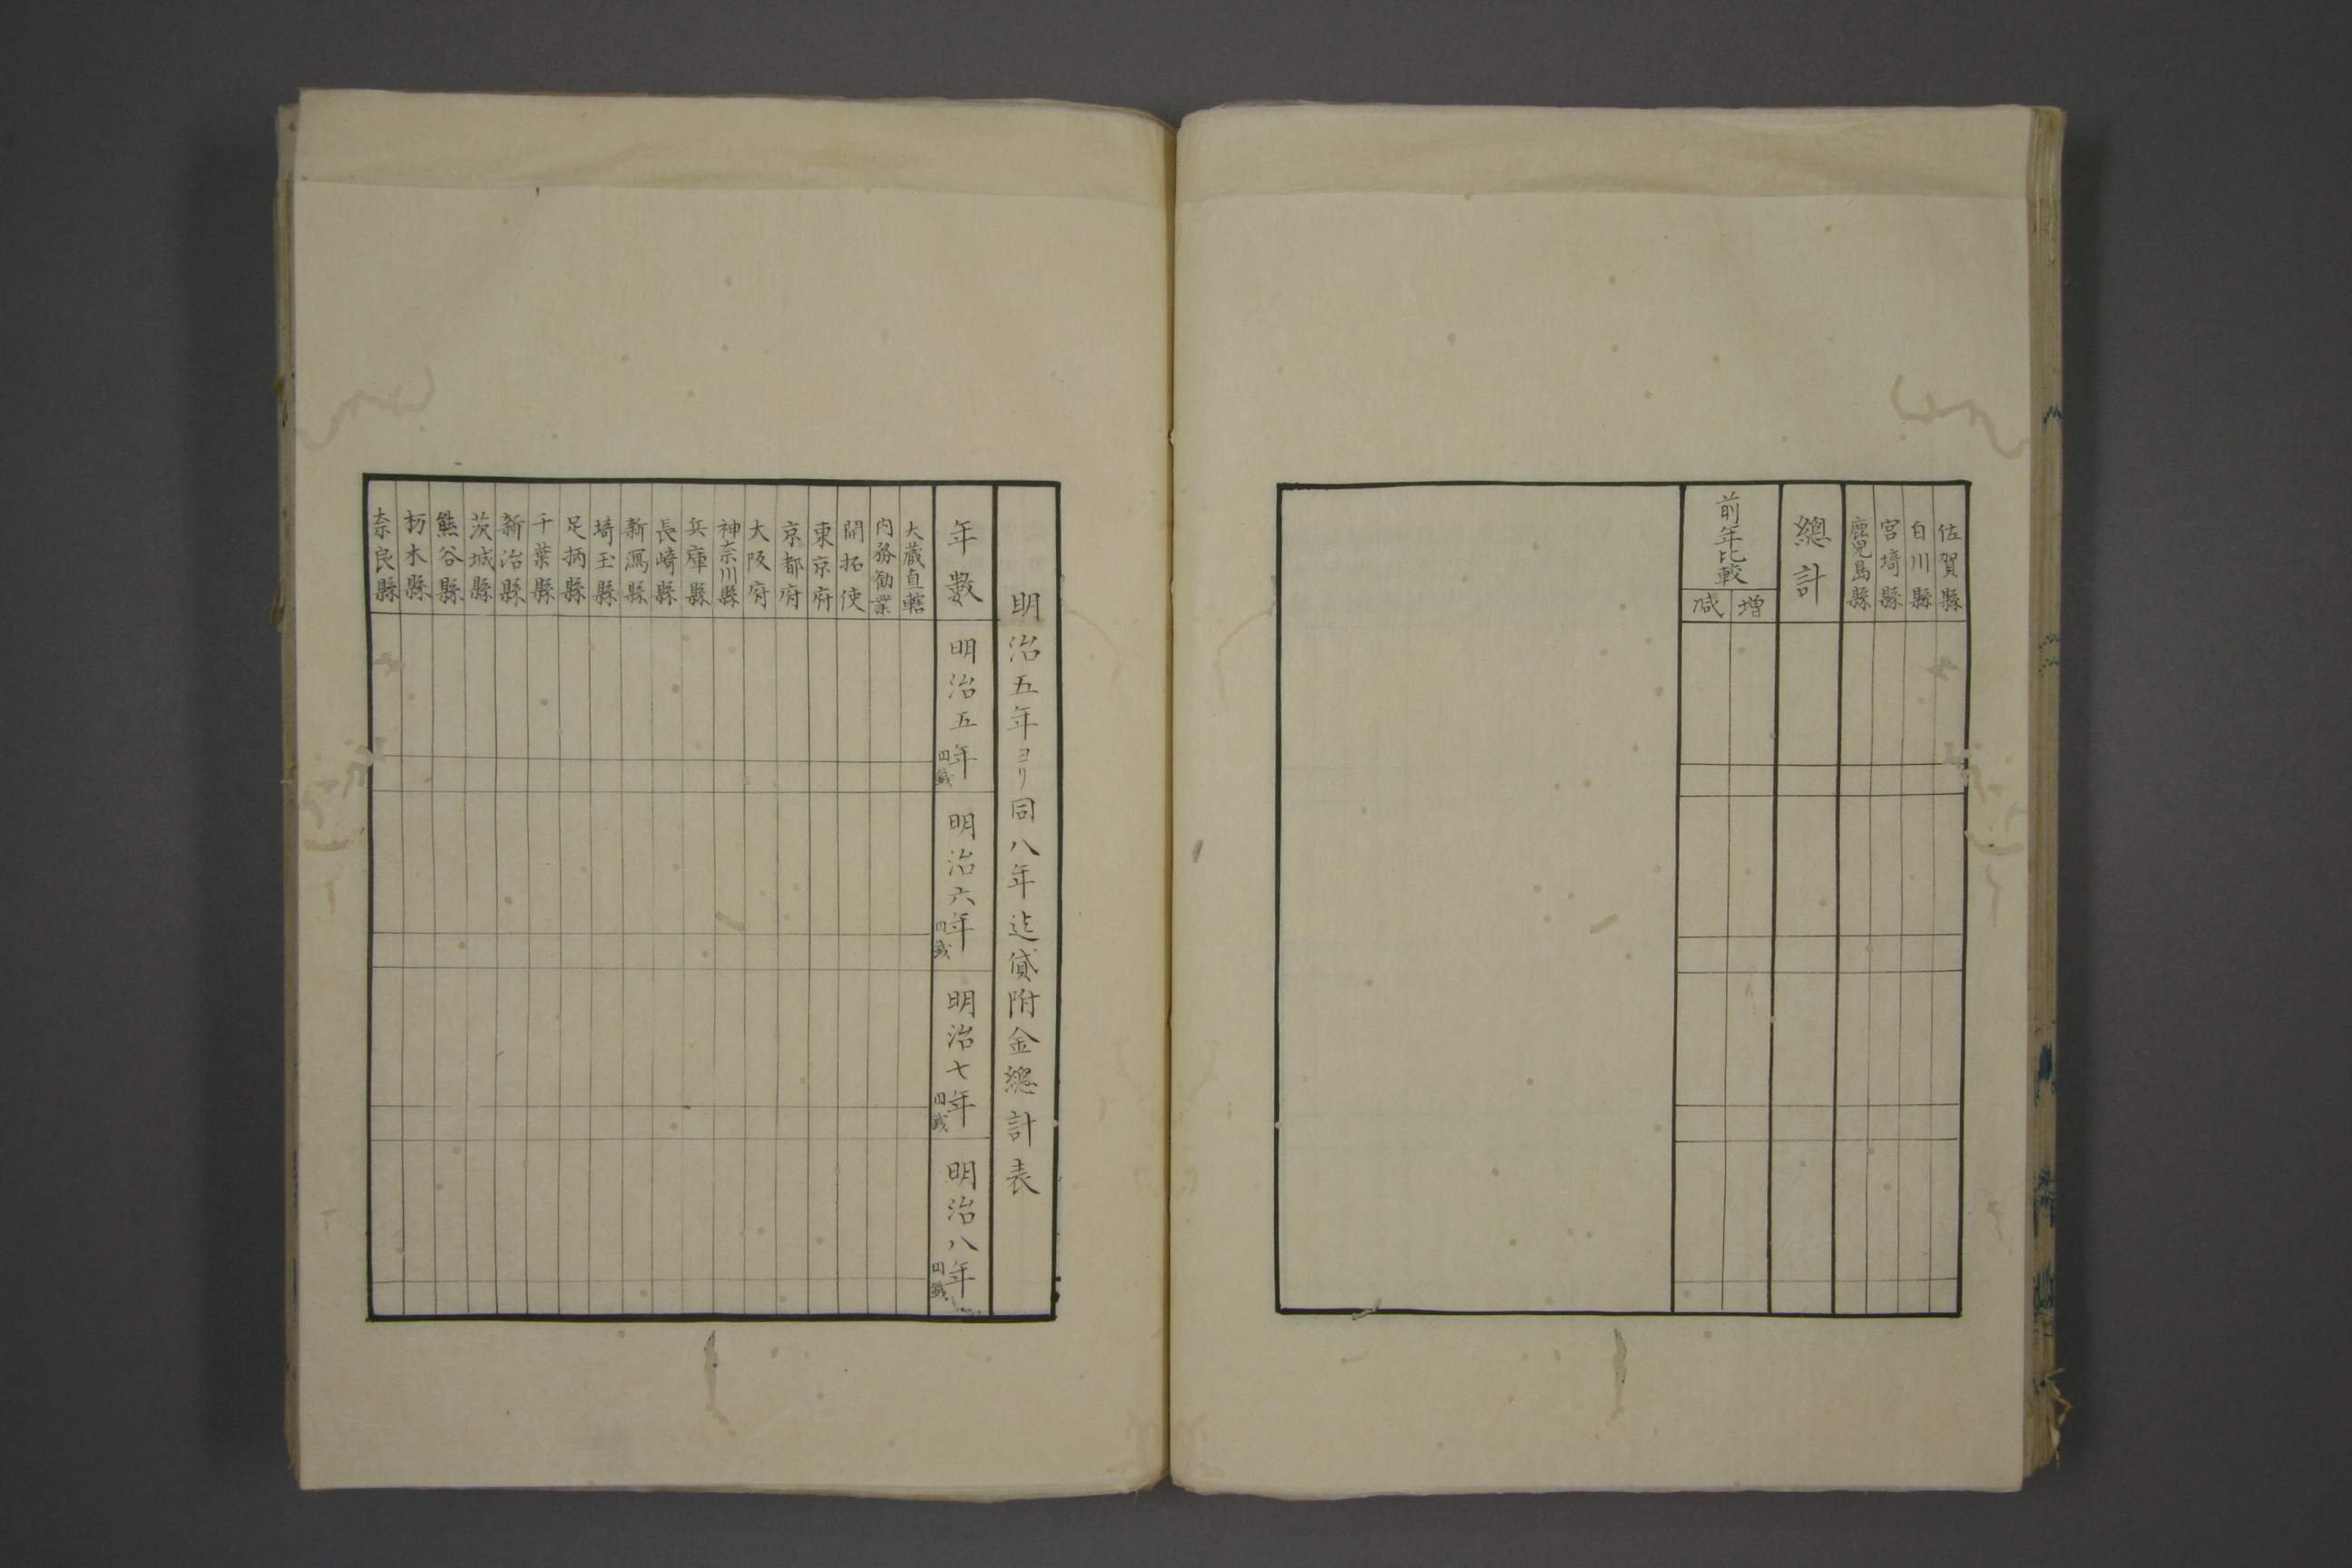 佐賀縣
白川縣
宮埼縣
鹿児島縣
總計
前年比較
増
减
明治五年ヨリ同八年迠貸附金總計表
年數
明治五年
円錢
明治六年
円錢
明治七年
円錢
明治八年
円錢
大蔵直轄
内務勧業
開拓使
東京府
京都府
大阪府
神奈川縣
兵庫縣
長崎縣
新潟縣
埼玉縣
足柄縣
千葉縣
新治縣
茨城縣
熊谷縣
杤木縣
奈良縣